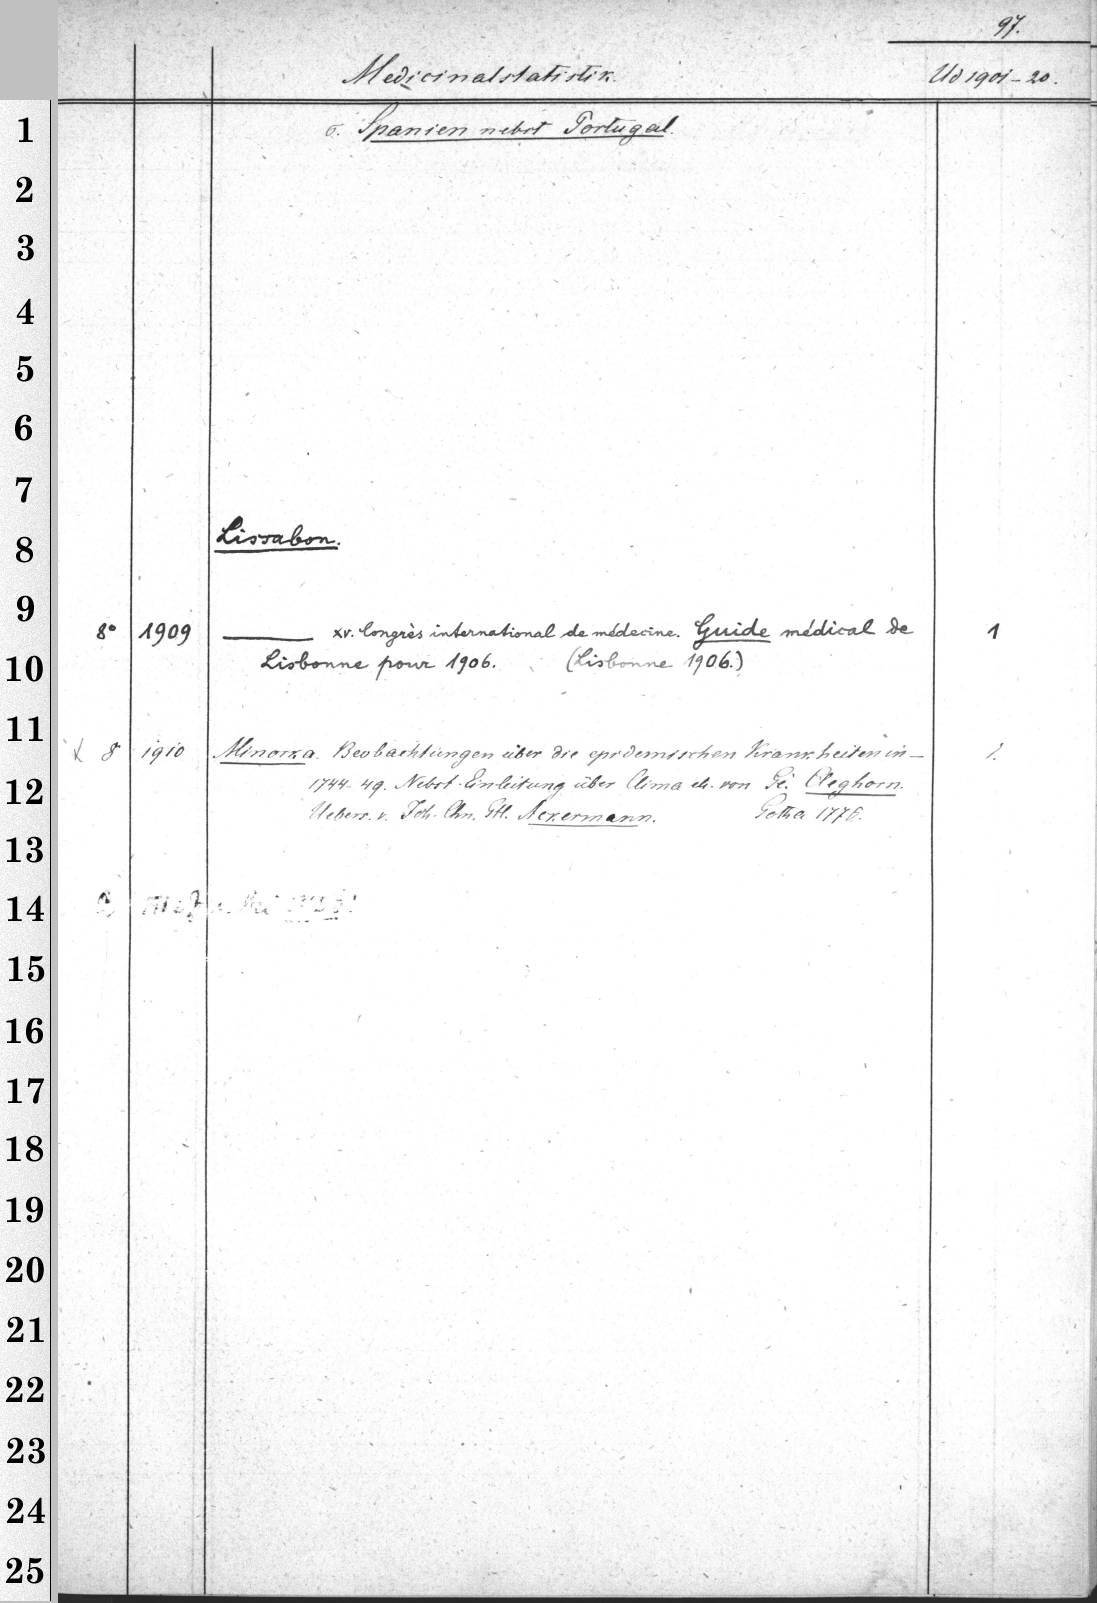 97.
Medicinalstatistik. Ud 1901-20.
1
σ. Spanien nebst Portugal.
2
3
4
5
6
7
Lissabon.
8
9
8° 1909 xv. Congrès international de médecine. Guide médical de 1
10
Lisbonne pour 1906. (Lisbonne 1906.)
11
8 1910 Minorka. Beobachtungen über die epidemischen Krankheiten in — 1.
12
1744-49. Nebst Einleitung über Clima etc. von Ge. Cleghorn.
Uebers. v. Joh. Chn. Gtl. Ackermann. Gotha 1776.
13
14
15
16
17
18
19
20
21
22
23
24
25